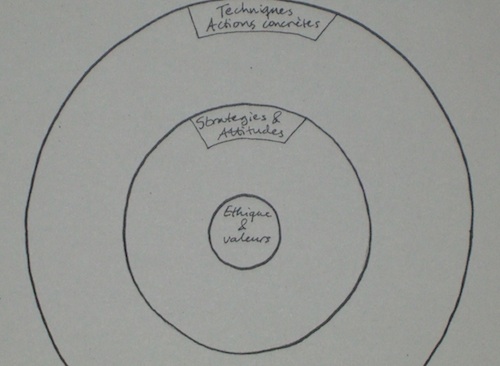 Techniques
Actions concrètes
Strategies &
Attitudes
Ethique
&
valeurs